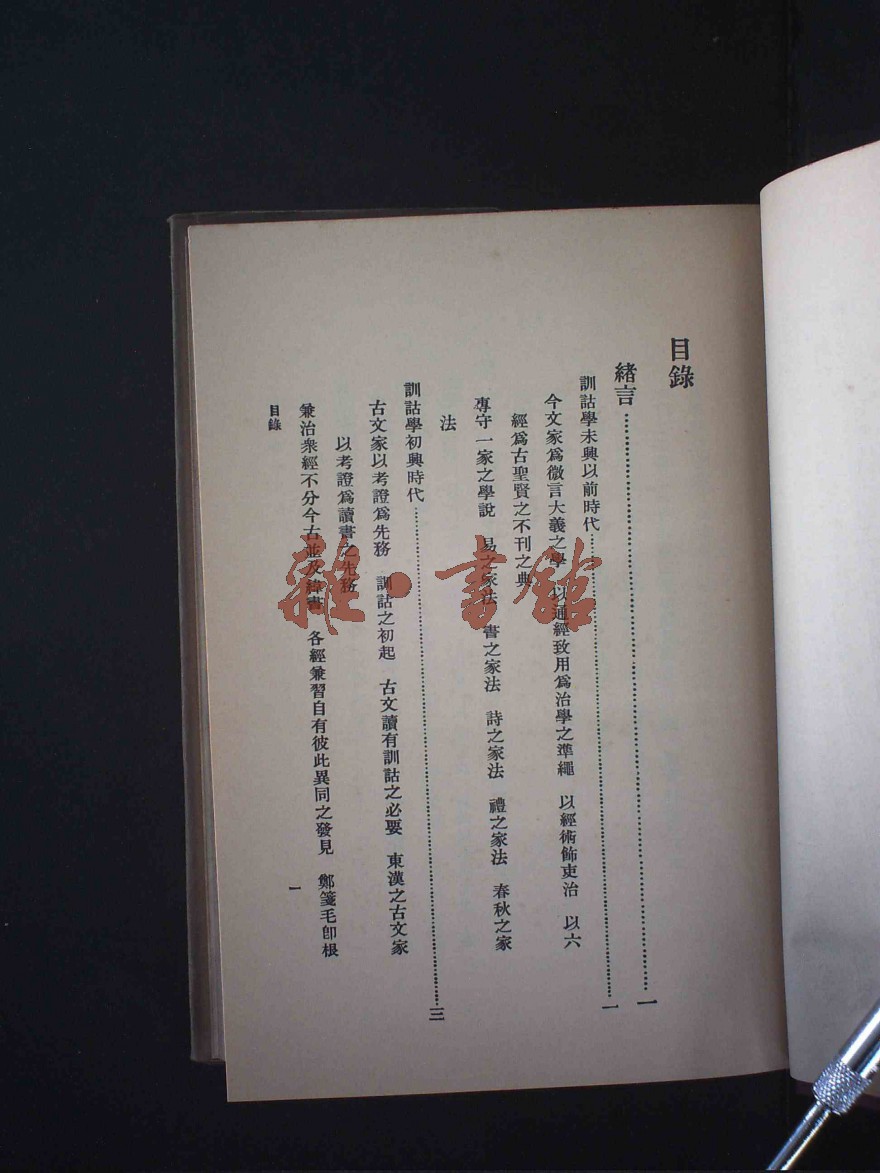 目錄
緒言……一
訓詁學未興以前時代……一
今文家爲微言大義之學　以通經致用爲治學之準繩　以經術飾吏治　以六
經爲古聖賢之不刊之典
專守一家之學說　易之家法　書之家法　詩之家法　禮之家法　春秋之家
法
訓詁學初興時代……三
古文家以考證爲先務　訓詁之初起　古文讀有訓詁之必要　東漢之古文家
以考證爲讀書之先務
兼治衆經不分今古並及緯書　各經兼習自有彼此異同之發見　鄭箋毛卽根
目錄
一
雜·書館